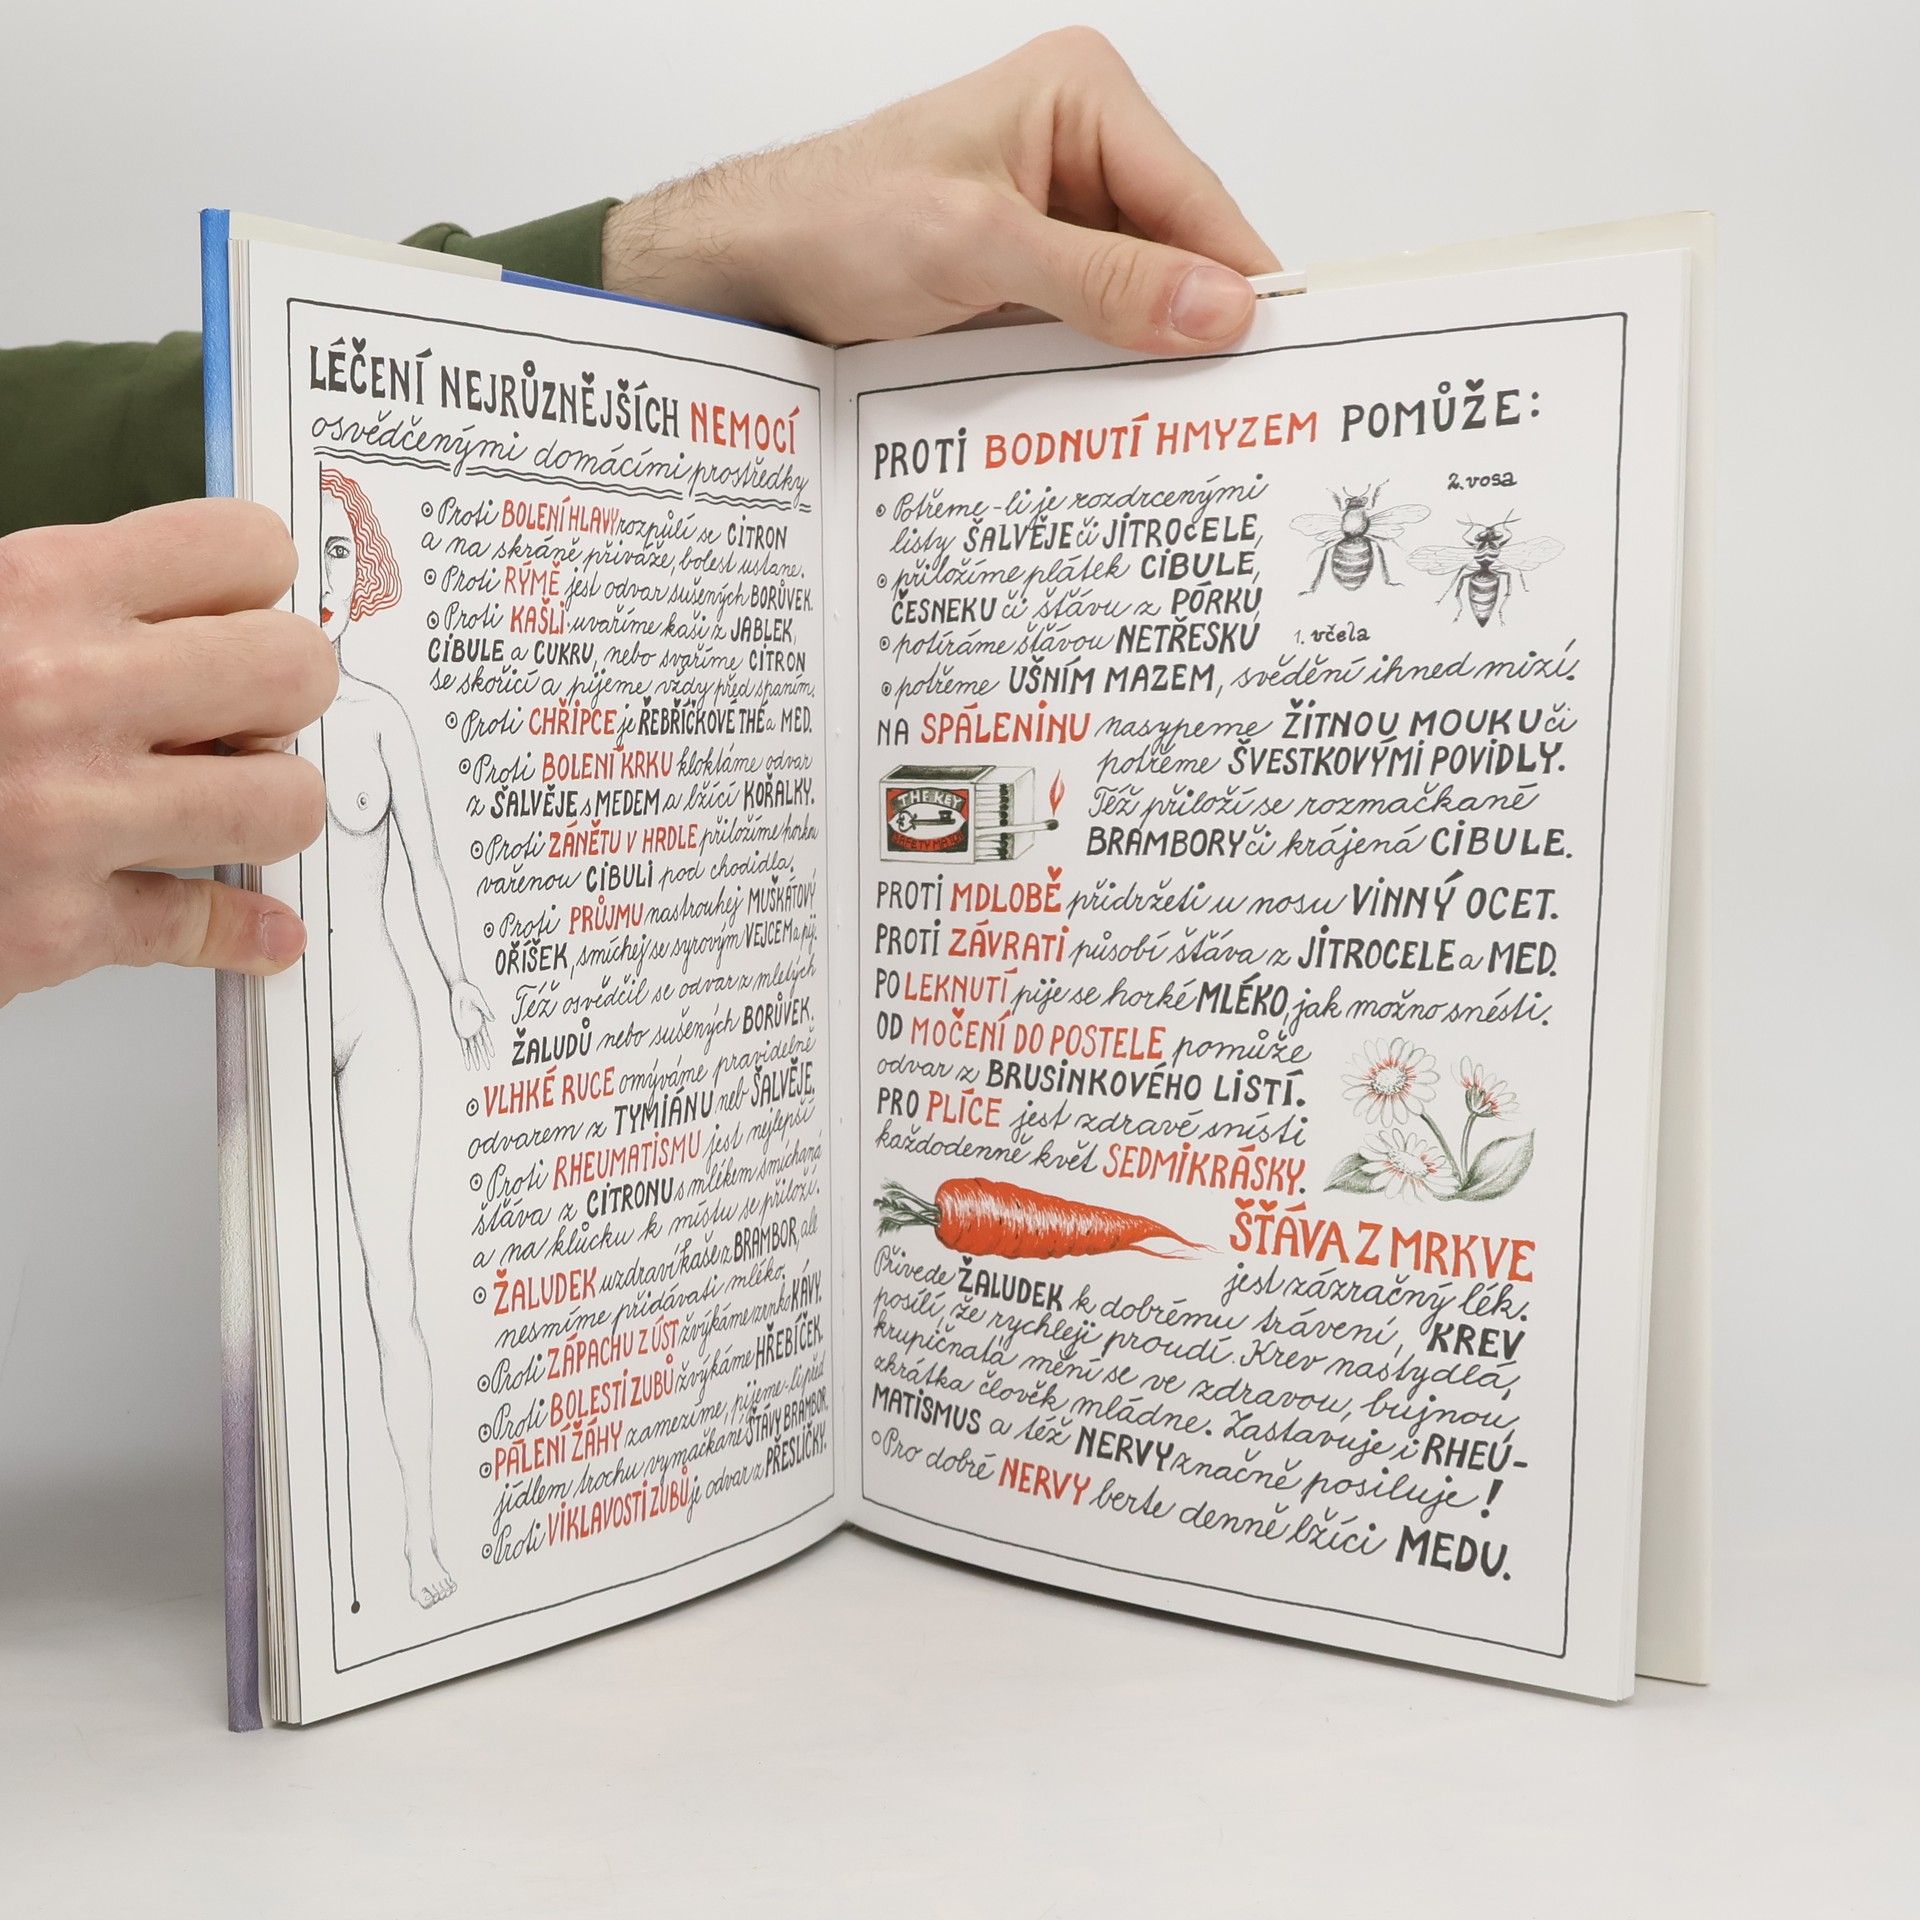 LÉČENÍ NEJRŮZNĚJŠÍCH NEMOCÍ
osvědčenými domácími prostředky
Proti BOLENÍ HLAVY rozpůlí se CITRON
a na skráně přiváže, bolest ustane.
Proti RÝMĚ jest odvar sušených BORŮVEK.
Proti KAŠLI uvaříme kaši z JABLEK,
CIBULE a CUKRU, nebo svaříme CITRON
se skořicí a pijeme vždy před spaním.
Proti CHŘIPCE je ŘEBŘÍČKOVÉ THÉ a MED.
Proti BOLENÍ KRKU kloktáme odvar
z ŠALVĚJE s MEDEM a lžící KOŘALKY.
Proti ZÁNĚTU V HRDLE přiložíme horkou
vařenou CIBULI pod chodidla.
Proti PRŮJMU nastrouhej MUŠKÁTOVÝ
OŘÍŠEK, smíchej se syrovým VEJCEM a pij.
Též osvědčil se odvar z mletých
ŽALUDŮ nebo sušených BORŮVEK.
VLHKÉ RUCE omýváme pravidelně
odvarem z TYMIÁNU neb ŠALVĚJE.
Proti RHEUMATISMU jest nejlepší
šťáva z CITRONU s mlékem smíchaná
a na klůcku k místu se přiloží.
ŽALUDEK uzdraví kaše z BRAMBOR, ale
nesmíme přidávati mléko.
Proti ZÁPACHU Z ÚST žvýkáme zrnko KÁVY.
Proti BOLESTI ZUBŮ žvýkáme HŘEBÍČEK.
PÁLENÍ ŽÁHY zamezíme, pijeme-li před
jídlem trochu vymačkané ŠŤÁVY BRAMBOR.
Proti VIKLAVOSTI ZUBŮ je odvar z PŘESLIČKY.
PROTI BODNUTÍ HMYZEM POMŮŽE:
Potřeme-li je rozdrcenými
listy ŠALVĚJE či JITROCELE,
přiložíme plátek CIBULE,
ČESNEKU či šťávu z PÓRKU
potíráme šťávou NETŘESKU
potřeme UŠNÍM MAZEM, svědění ihned mizí.
2. vosa
1. včela
NA SPÁLENINU nasypeme ŽITNOU MOUKU či
potřeme ŠVESTKOVÝMI POVIDLY.
Též přiloží se rozmačkané
BRAMBORY či krájená CIBULE.
THE KEY
SAFETY MATCH
PROTI MDLOBĚ přidržeti u nosu VINNÝ OCET.
PROTI ZÁVRATI působí šťáva z JITROCELE a MED.
PO LEKNUTÍ pije se horké MLÉKO, jak možno snésti.
OD MOČENÍ DO POSTELE pomůže
odvar z BRUSINKOVÉHO LISTÍ.
PRO PLÍCE jest zdravé snísti
každodenně květ SEDMIKRÁSKY.
ŠŤÁVA Z MRKVE
jest zázračný lék.
Přivede ŽALUDEK k dobrému trávení, KREV
posílí, že rychleji proudí. Krev nastydlá,
krupičnatá mění se ve zdravou, bujnou,
zkrátka člověk mládne. Zastavuje i RHEU-
MATISMUS a též NERVY značně posiluje!
Pro dobré NERVY berte denně lžíci MEDU.